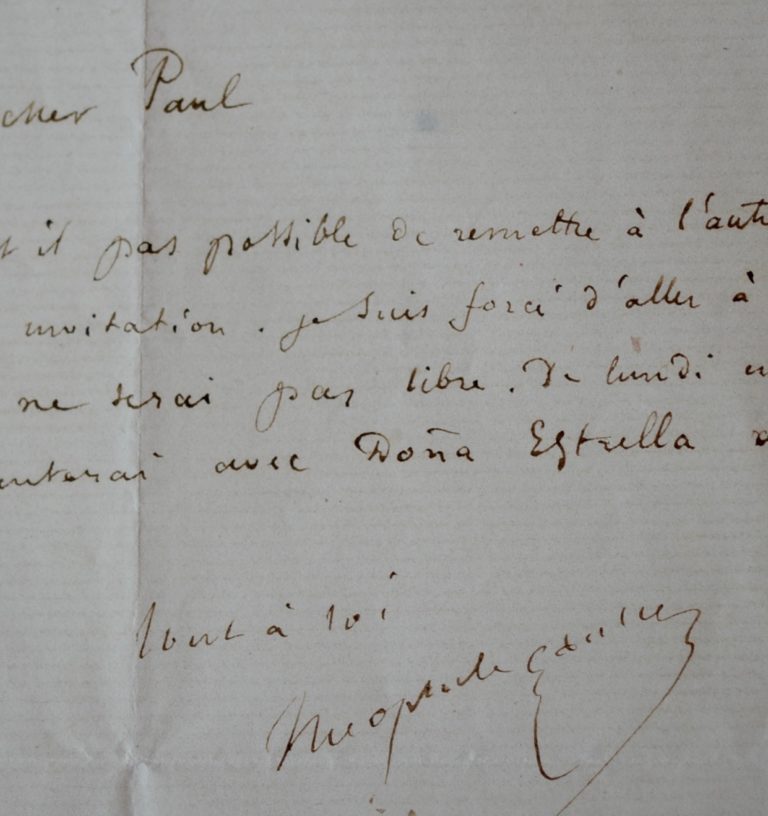 cher Paul
t il pas possible de remettre à l'aut
invitation. je suis forcé d'aller à
ne serai pas libre. De lundi e
enterai avec Doña Estrella
tout à toi
Theophile Gautier